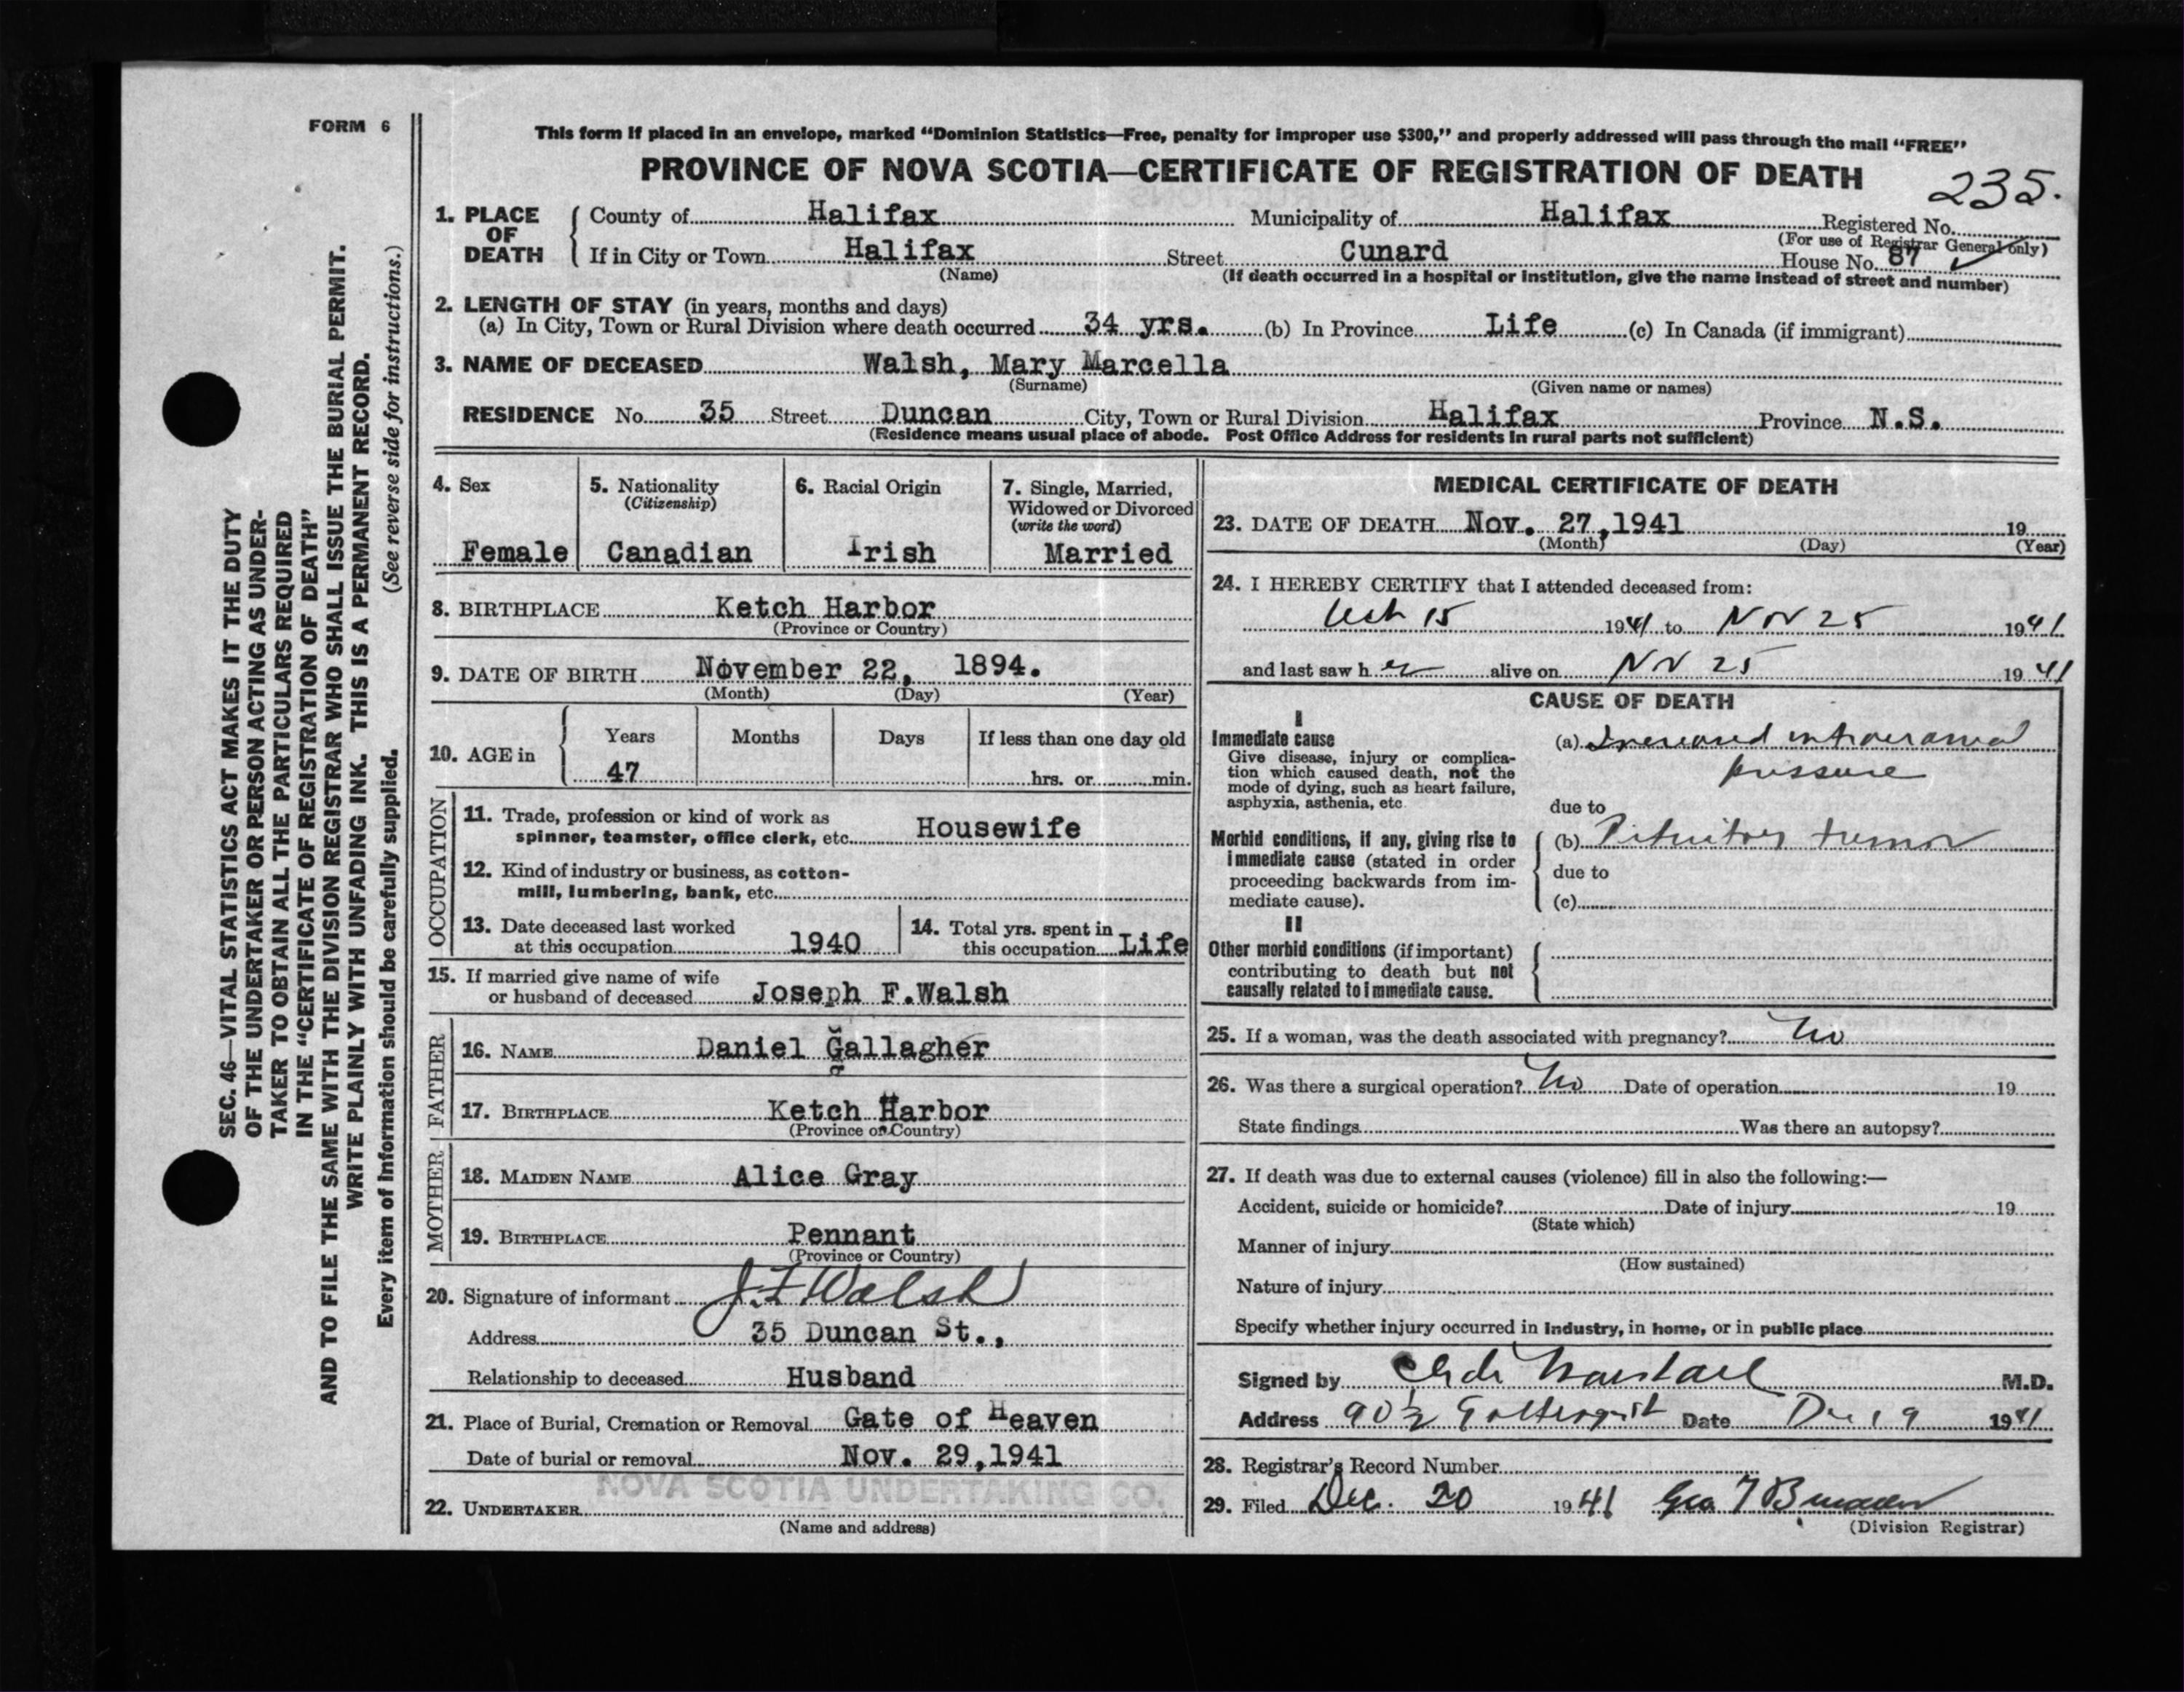 FORM 6
This form if placed in an envelope, marked “Dominion Statistics—Free, penalty for improper use $300,” and properly addressed will pass through the mail “FREE”
PROVINCE OF NOVA SCOTIA—CERTIFICATE OF REGISTRATION OF DEATH
235.
1. PLACE OF DEATH
County of Halifax Municipality of Halifax Registered No.
(For use of Registrar General only)
If in City or Town Halifax Street Cunard House No. 87
(Name) (If death occurred in a hospital or institution, give the name instead of street and number)
2. LENGTH OF STAY (in years, months and days)
(a) In City, Town or Rural Division where death occurred 34 yrs. (b) In Province Life (c) In Canada (if immigrant)
3. NAME OF DECEASED Walsh, Mary Marcella
(Surname) (Given name or names)
RESIDENCE No. 35 Street Duncan City, Town or Rural Division Halifax Province N.S.
(Residence means usual place of abode. Post Office Address for residents in rural parts not sufficient)
4. Sex
Female
5. Nationality
(Citizenship)
Canadian
6. Racial Origin
Irish
7. Single, Married,
Widowed or Divorced
(write the word)
Married
8. BIRTHPLACE Ketch Harbor
(Province or Country)
9. DATE OF BIRTH November 22, 1894.
(Month) (Day) (Year)
10. AGE in
Years Months Days If less than one day old
47 hrs. or min.
OCCUPATION
11. Trade, profession or kind of work as
spinner, teamster, office clerk, etc. Housewife
12. Kind of industry or business, as cotton-
mill, lumbering, bank, etc.
13. Date deceased last worked
at this occupation 1940
14. Total yrs. spent in
this occupation Life
15. If married give name of wife
or husband of deceased Joseph F.Walsh
FATHER
16. NAME Daniel Gallagher
17. BIRTHPLACE Ketch Harbor
(Province or Country)
MOTHER
18. MAIDEN NAME Alice Gray
19. BIRTHPLACE Pennant
(Province or Country)
20. Signature of informant J.F Walsh
Address 35 Duncan St.,
Relationship to deceased Husband
21. Place of Burial, Cremation or Removal Gate of Heaven
Date of burial or removal Nov. 29,1941
NOVA SCOTIA UNDERTAKING CO.
22. UNDERTAKER
(Name and address)
MEDICAL CERTIFICATE OF DEATH
23. DATE OF DEATH Nov. 27,1941 19
(Month) (Day) (Year)
24. I HEREBY CERTIFY that I attended deceased from:
Oct 15 1941 to Nov 25 1941
and last saw her alive on Nov 25 1941
CAUSE OF DEATH
I
Immediate cause
Give disease, injury or complica-
tion which caused death, not the
mode of dying, such as heart failure,
asphyxia, asthenia, etc.
(a) Increased intracranial
pressure
due to
Morbid conditions, if any, giving rise to
immediate cause (stated in order
proceeding backwards from im-
mediate cause).
(b) Pituitary tumor
due to
(c)
II
Other morbid conditions (if important)
contributing to death but not
causally related to immediate cause.
25. If a woman, was the death associated with pregnancy? No
26. Was there a surgical operation? No Date of operation 19
State findings Was there an autopsy?
27. If death was due to external causes (violence) fill in also the following:—
Accident, suicide or homicide? Date of injury 19
(State which)
Manner of injury
(How sustained)
Nature of injury
Specify whether injury occurred in industry, in home, or in public place
Signed by Clyde Marshall M.D.
Address 90 1/2 Date Dec 19 1941
28. Registrar's Record Number
29. Filed Dec. 20 1941 Geo
(Division Registrar)
SEC. 46—VITAL STATISTICS ACT MAKES IT THE DUTY
OF THE UNDERTAKER OR PERSON ACTING AS UNDER-
TAKER TO OBTAIN ALL THE PARTICULARS REQUIRED
IN THE “CERTIFICATE OF REGISTRATION OF DEATH”
AND TO FILE THE SAME WITH THE DIVISION REGISTRAR WHO SHALL ISSUE THE BURIAL PERMIT.
WRITE PLAINLY WITH UNFADING INK. THIS IS A PERMANENT RECORD.
Every item of information should be carefully supplied. (See reverse side for instructions.)